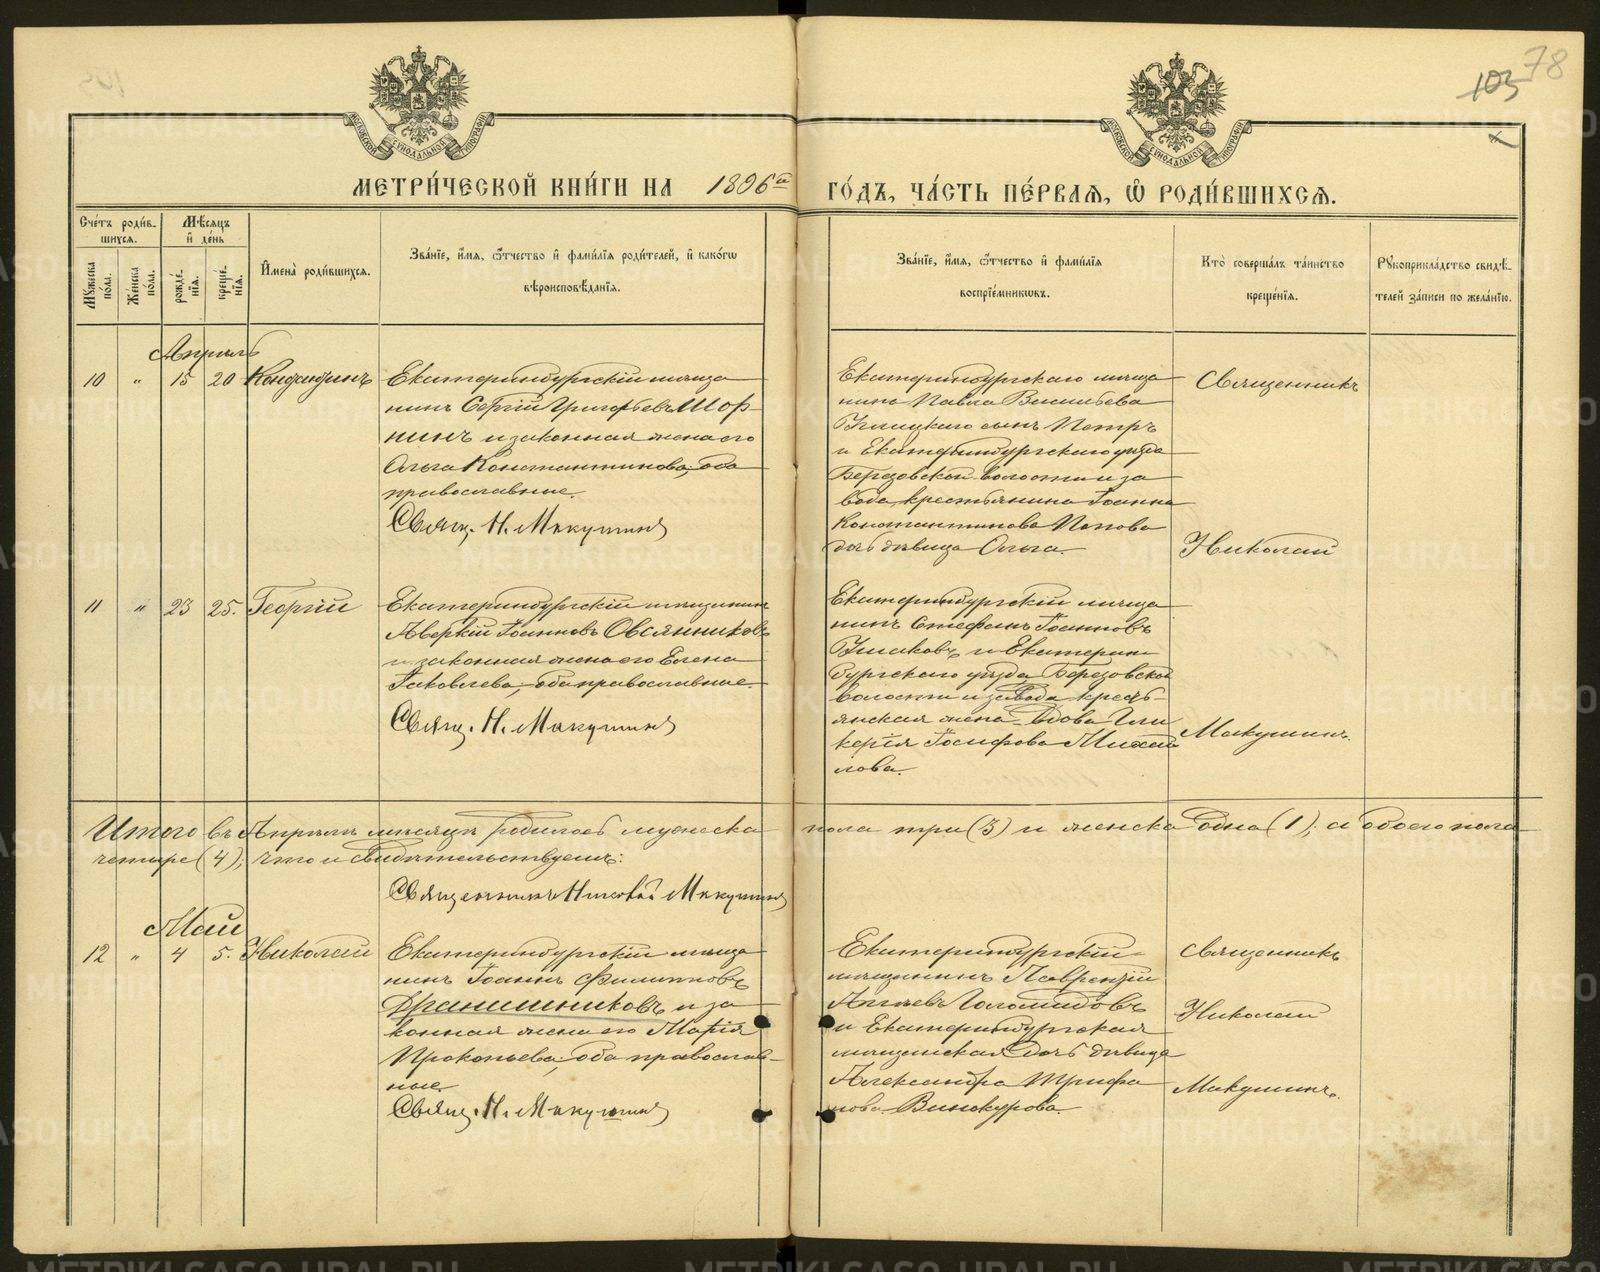 78
103
МОСКОВСКОЙ СѴНОДАЛЬНОЙ ТИПОГРАФІИ
МОСКОВСКОЙ СѴНОДАЛЬНОЙ ТИПОГРАФІИ
МЕТРИ́ЧЕСКОЙ КНИ́ГИ НА 1896й ГО́ДЪ, ЧА́СТЬ ПЕ́РВАѦ, Ѡ҆ РОДИ́ВШИХСѦ.
Сче́тъ роди́вшихсѧ.
Мꙋ́жеска по́ла.
Же́нска по́ла.
Мѣ́сѧцъ и҆ де́нь
рожде́нїѧ.
креще́нїѧ.
И҆мена̀ роди́вшихсѧ.
Зва́нїе, и҆́мѧ, ѻ҆́тчество и҆ фами́лїѧ роди́телей, и҆ како́гѡ
вѣроисповѣ́данїѧ.
Зва́нїе, и҆́мѧ, ѻ҆́тчество и҆ фами́лїѧ
воспрїе́мникѡвъ.
Кто̀ соверша́лъ та́инство
креще́нїѧ.
Рꙋкоприкла́дство свидѣ́телей за́писи по жела́нїю.
Апрѣль
10 " 15 20
Екатеринбургскій мѣща
нинъ Сергій Григорьевъ Шор
нинъ и законная жена его
Ольга Константинова, оба
православные.
Свящ. Н. Макушинъ
Екатеринбургскаго мѣща
нина Павла Васильева
сынъ Петръ
и Екатеринбургскаго уѣзда
Березовской волости и за
вода крестьянина Іоанна
Константинова Попова
дочь дѣвица Ольга.
Священникъ
Николай
11 " 23 25. Георгій
Екатеринбургскій мѣщанинъ
Аверкій Іоанновъ Овсянниковъ
и законная жена его Елена
Іаковлева, оба православные.
Свящ. Н. Макушинъ
Екатеринбургскій мѣща
нинъ Стефанъ Іоанновъ
Ушаковъ и Екатерин
бургскаго уѣзда Березовской
волости и завода кресть
янская жена вдова Гли
керія Іосифова Михай
лова.
Макушинъ.
Итого въ Апрѣлѣ мѣсяцѣ родилось мужеска пола три (3) и женска одна (1), а обоего пола
четыре (4), что и свидѣтельствуемъ:
Священникъ Николай Макушинъ
Май
12 " 4 5. Николай
Екатеринбургскій мѣща
нинъ Іоаннъ Филипповъ
Дранишниковъ и за
конная жена его Марія
Прокопьева, оба православ-
ные.
Свящ. Н. Макушинъ
Екатеринбургскій
мѣщанинъ Лаврентій
Голомидовъ
и Екатеринбургская
мѣщанская дочь дѣвица
Александра Трифа
нова Винокурова.
Священникъ
Николай
Макушинъ.
METRIKI.GASO-URAL.RU